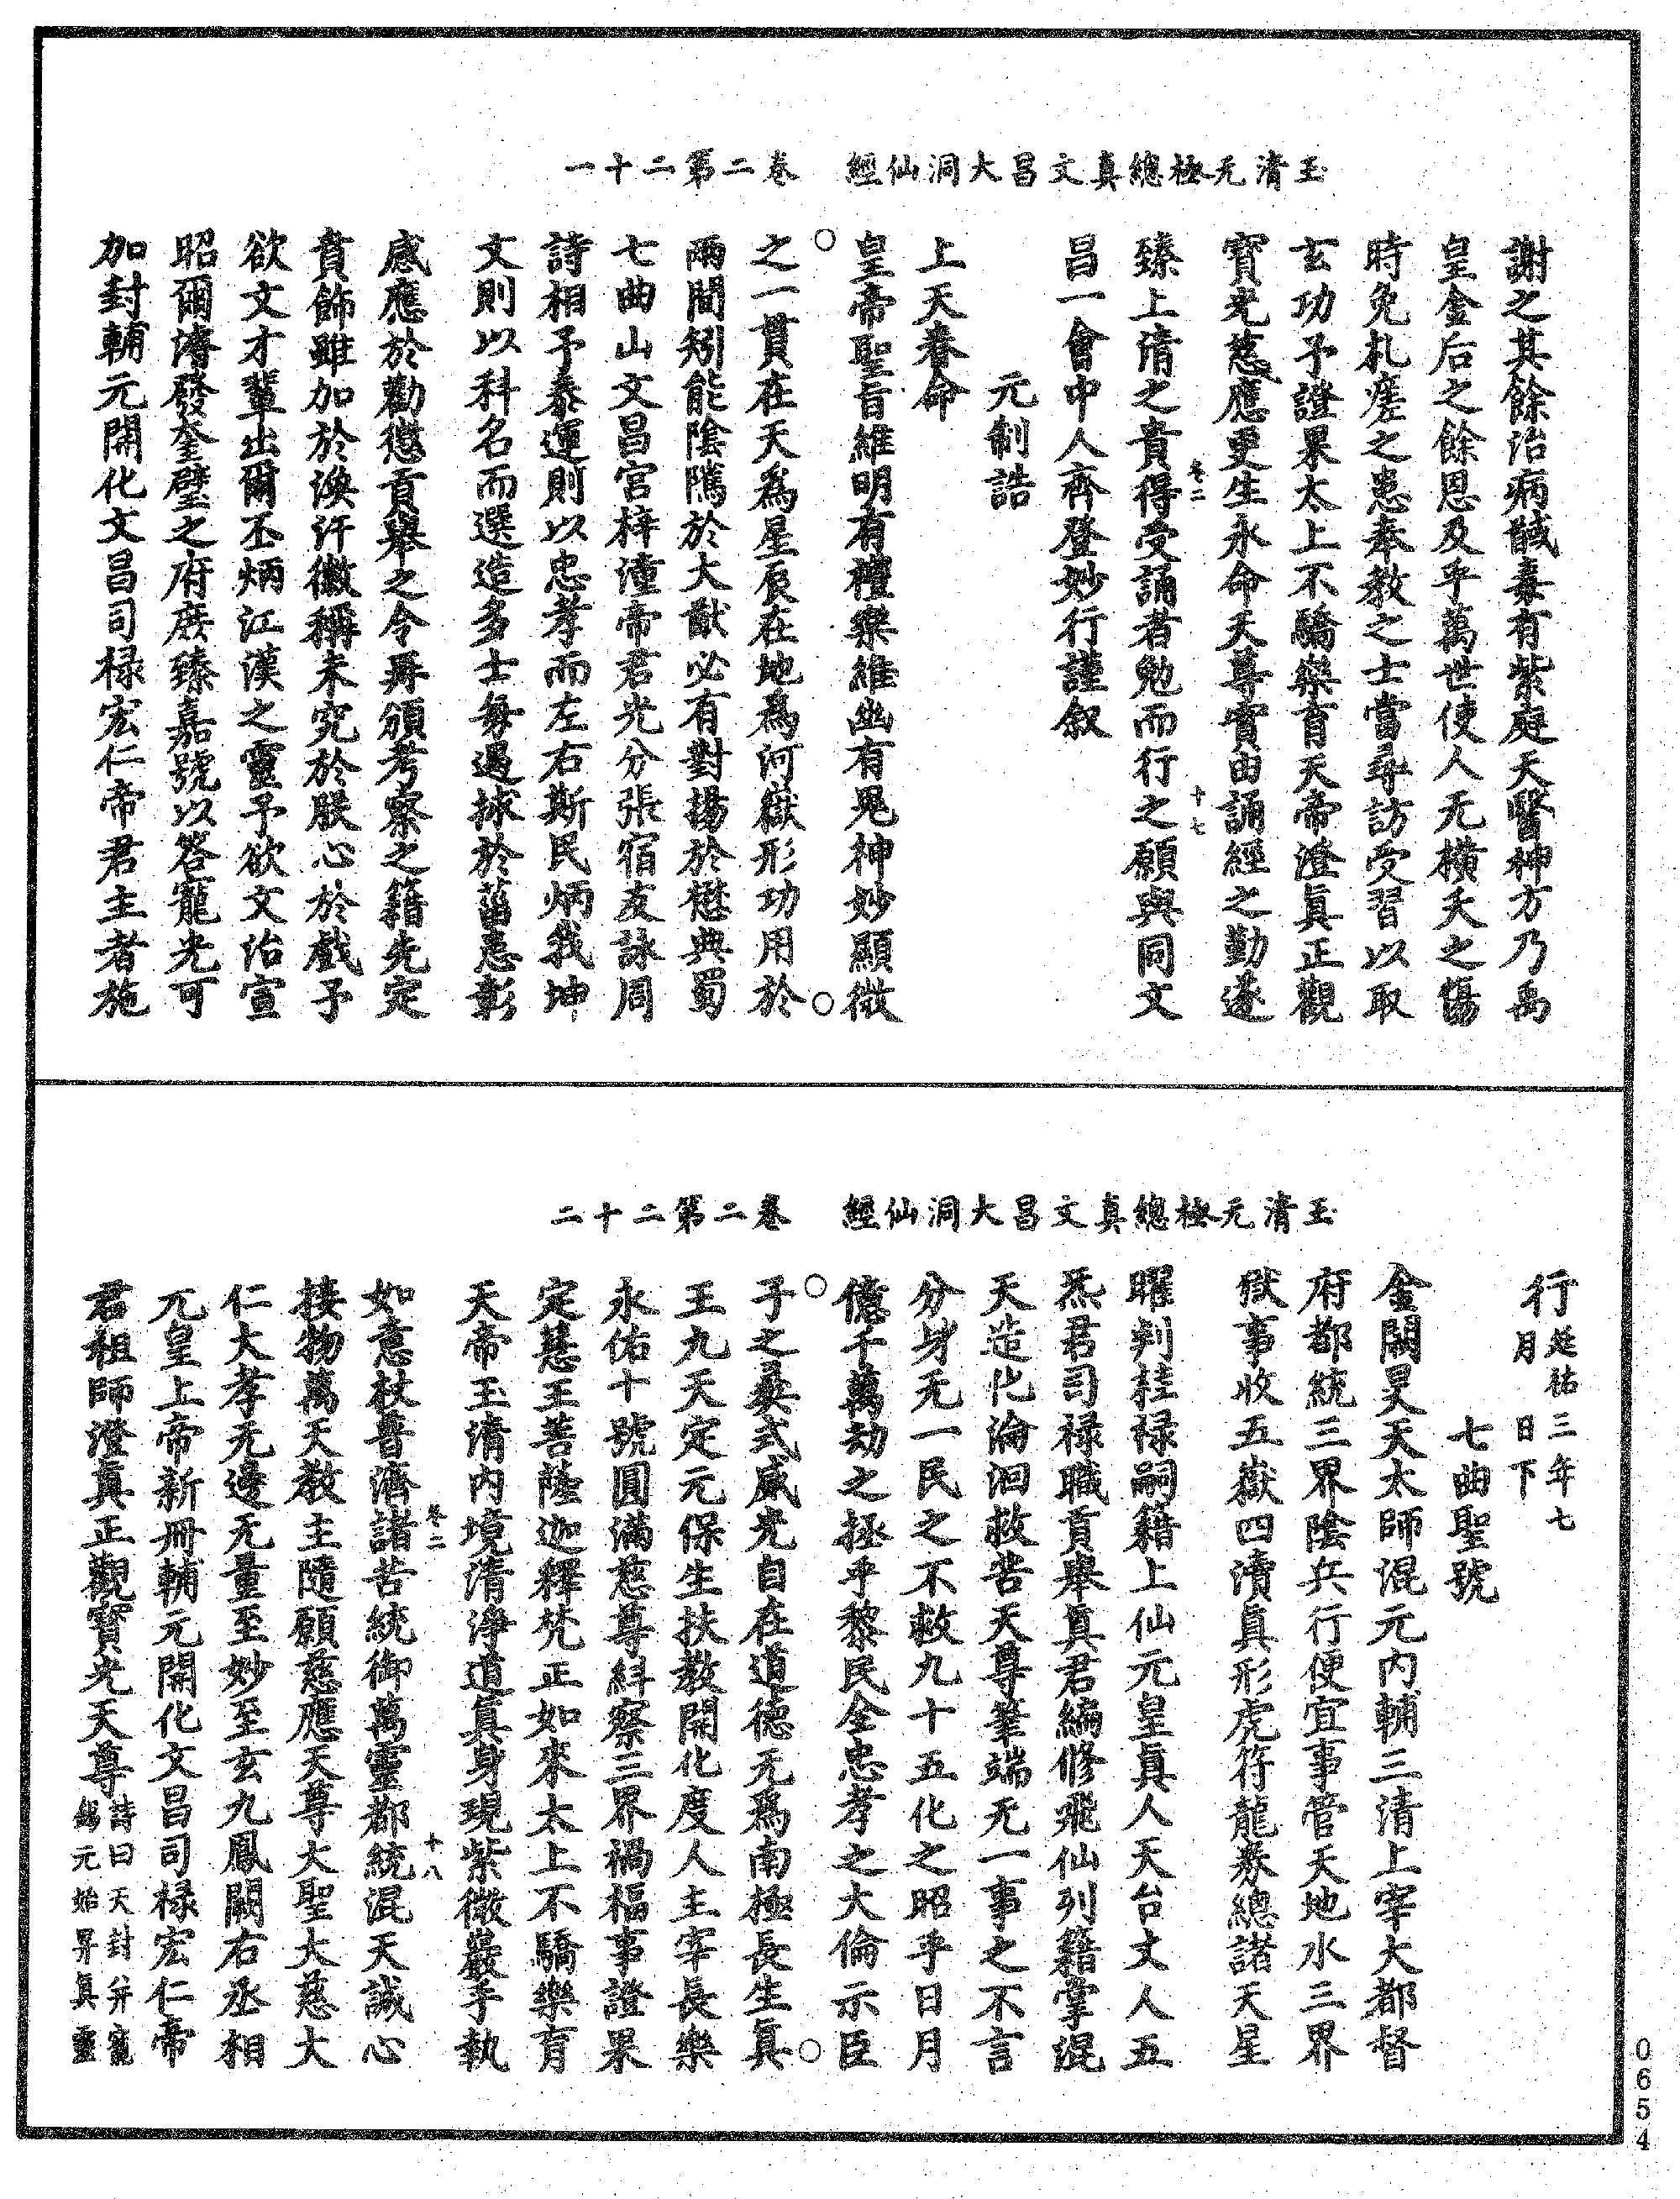 玉清元極總真文昌大洞仙經　卷二第二十一
謝之其餘治病馘毒有紫庭天醫神方乃禹
皇金后之餘恩及乎萬世使人无橫夭之傷
時免札瘥之患奉教之士當尋訪受習以取
玄功予證果太上不驕樂育天帝澄真正觀
寶光慈應更生永命天尊實由誦經之勤遂
臻上清之貴得受誦者勉而行之願與同文
卷二　十七
昌一會中人齊登妙行謹叙
元制誥
上天眷命
皇帝聖旨維明有禮樂維幽有鬼神妙顯微
之一貫在天為星辰在地為河嶽形功用於
兩間矧能陰騭於大猷必有對揚於懋典蜀
七曲山文昌宮梓潼帝君光分張宿友詠周
詩相予泰運則以忠孝而左右斯民炳我坤
文則以科名而選造多士每遏捄於菑患彰
感應於勸懲貢舉之令再頒考察之籍先定
賁飾雖加於渙汗徽稱未究於朕心於戲予
欲文才輩出爾丕炳江漢之靈予欲文治宣
昭爾濬發奎璧之府庶臻嘉號以答寵光可
加封輔元開化文昌司祿宏仁帝君主者施
玉清元極總真文昌大洞仙經　卷二第二十二
行延祐三年七
月　日下
七曲聖號
金闕昊天太師混元內輔三清上宰大都督
府都統三界陰兵行便宜事管天地水三界
獄事收五嶽四瀆真形虎符龍券總諸天星
曜判桂祿嗣籍上仙元皇真人天台丈人五
炁君司祿職貢舉真君編修飛仙列籍掌混
天造化淪洄救苦天尊筆端无一事之不言
分身无一民之不救九十五化之昭乎日月
億千萬劫之拯乎黎民全忠孝之大倫示臣
子之彝式威光自在道德无為南極長生真
王九天定元保生扶教開化度人主宰長樂
永佑十號圓滿慈尊糾察三界禍福事證果
定慧王菩薩迦釋梵正如來太上不驕樂育
天帝玉清內境清淨道真身現紫微巖手執
卷二　十八
如意杖普濟諸苦統御萬靈都統混天誠心
接物萬天教主隨願慈應天尊大聖大慈大
仁大孝无邊无量至妙至玄九鳳闕右丞相
元皇上帝新冊輔元開化文昌司祿宏仁帝
君祖師澄真正觀寶光天尊詩曰天封并寵
錫元始昇真靈
0654